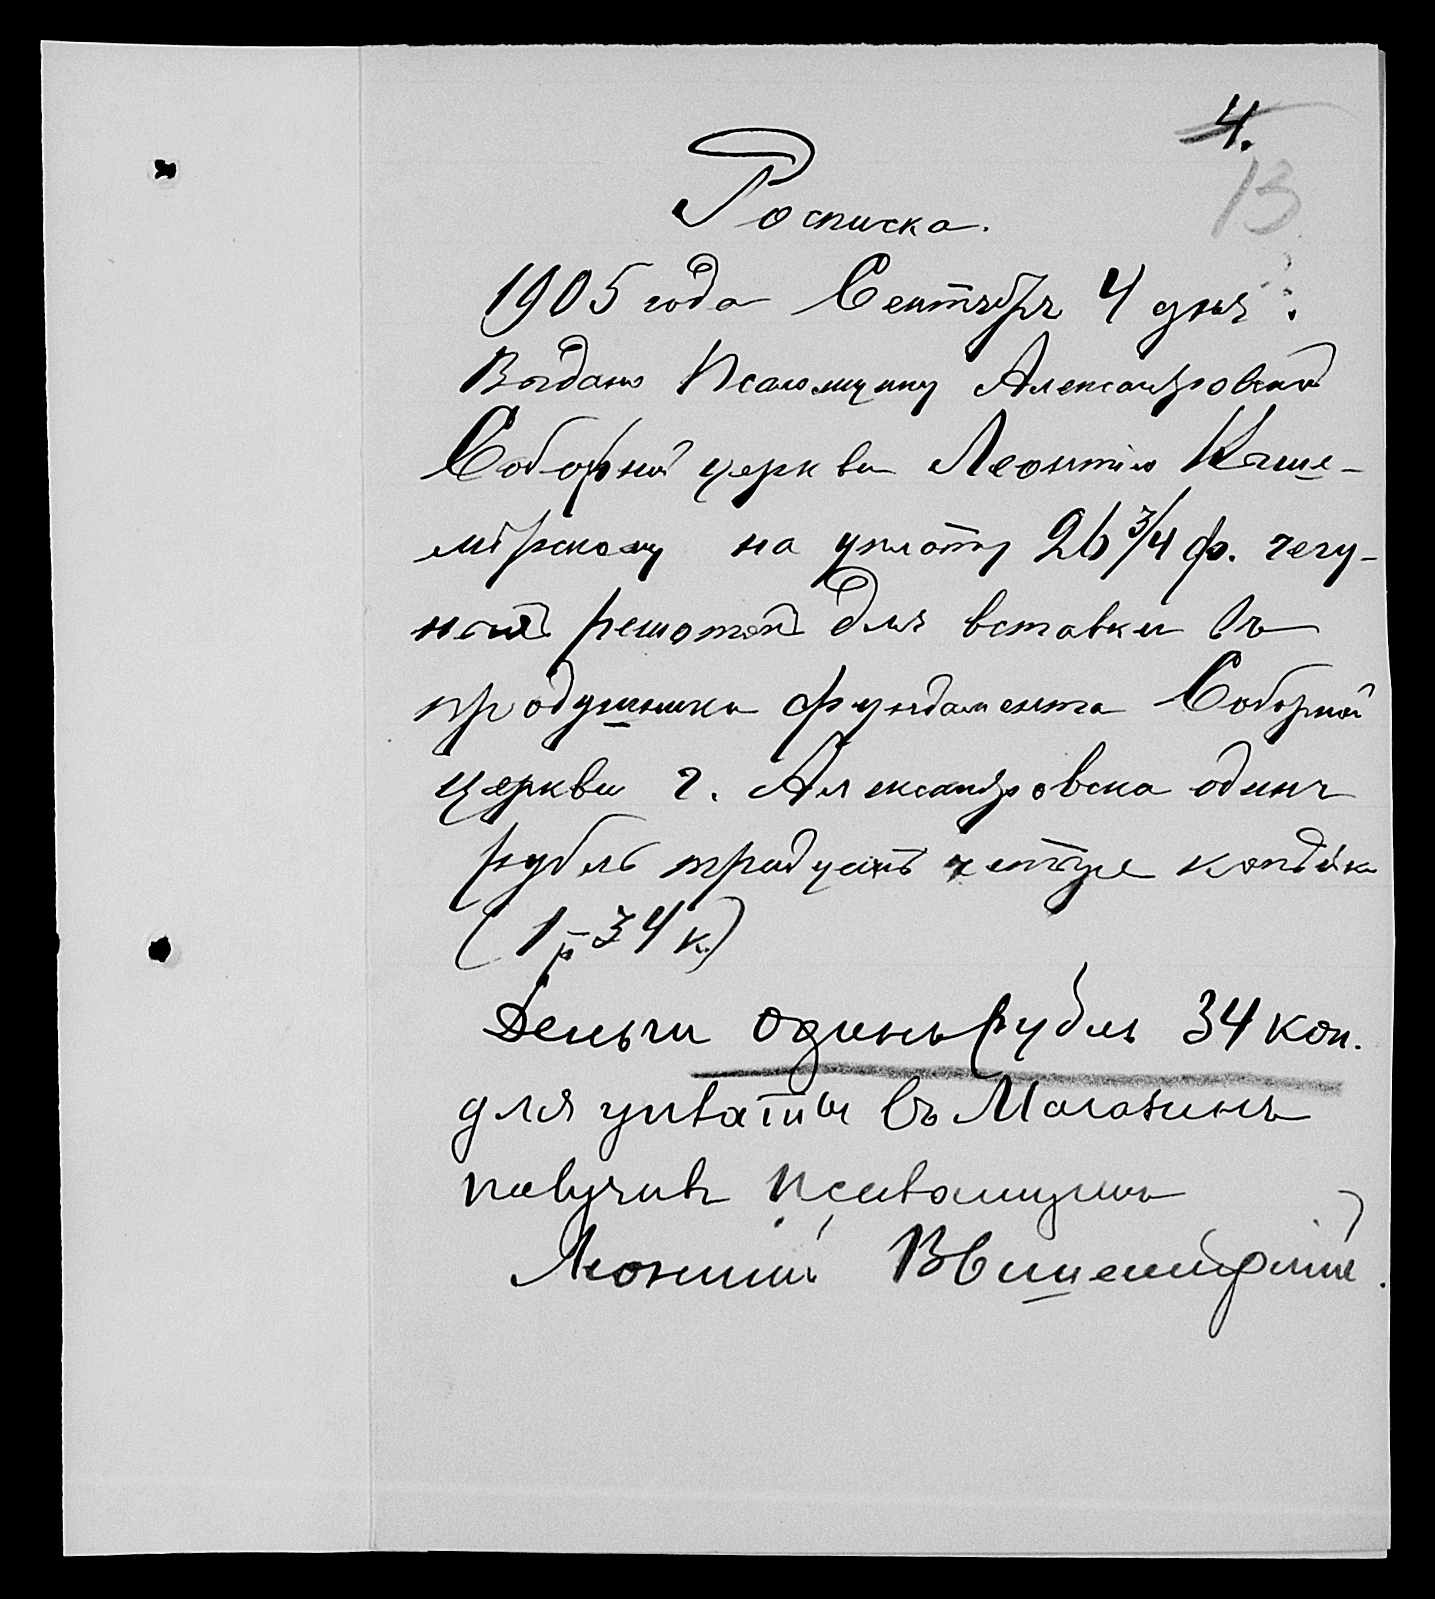 4.
13
Росписка.
1905 года Сентября 4 дня.
Выдано Псаломщику Александровской
Соборной церкви Леонтію
на уплату 26 3/4 ф. чегу-
ной решотки для вставки въ
продушники фундамента Соборной
церкви г. Александровска одинъ
рубль тридцать четыре копѣйки
(1 р 34 к.)
Деньги одинъ рубль 34 коп.
для уплаты въ Магазинъ
получилъ Псаломщикъ
Леонтій